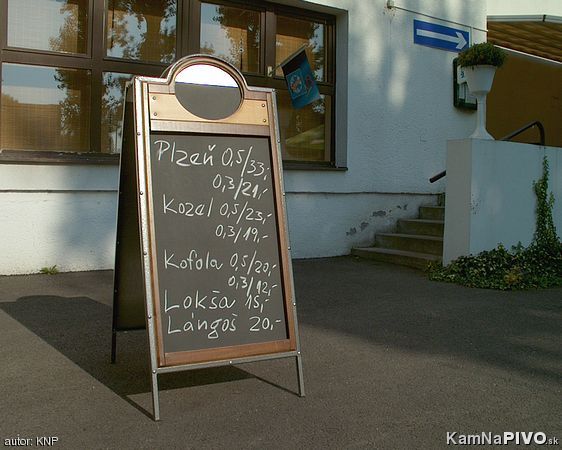 Plzeň 0,5/33,-
0,3/21,-
Kozel 0,5/23,-
0,3/19,-
Kofola 0,5/20,-
0,3/12,-
Lokša 15,-
Lángoš 20,-
autor: KNP
KamNaPIVO.sk